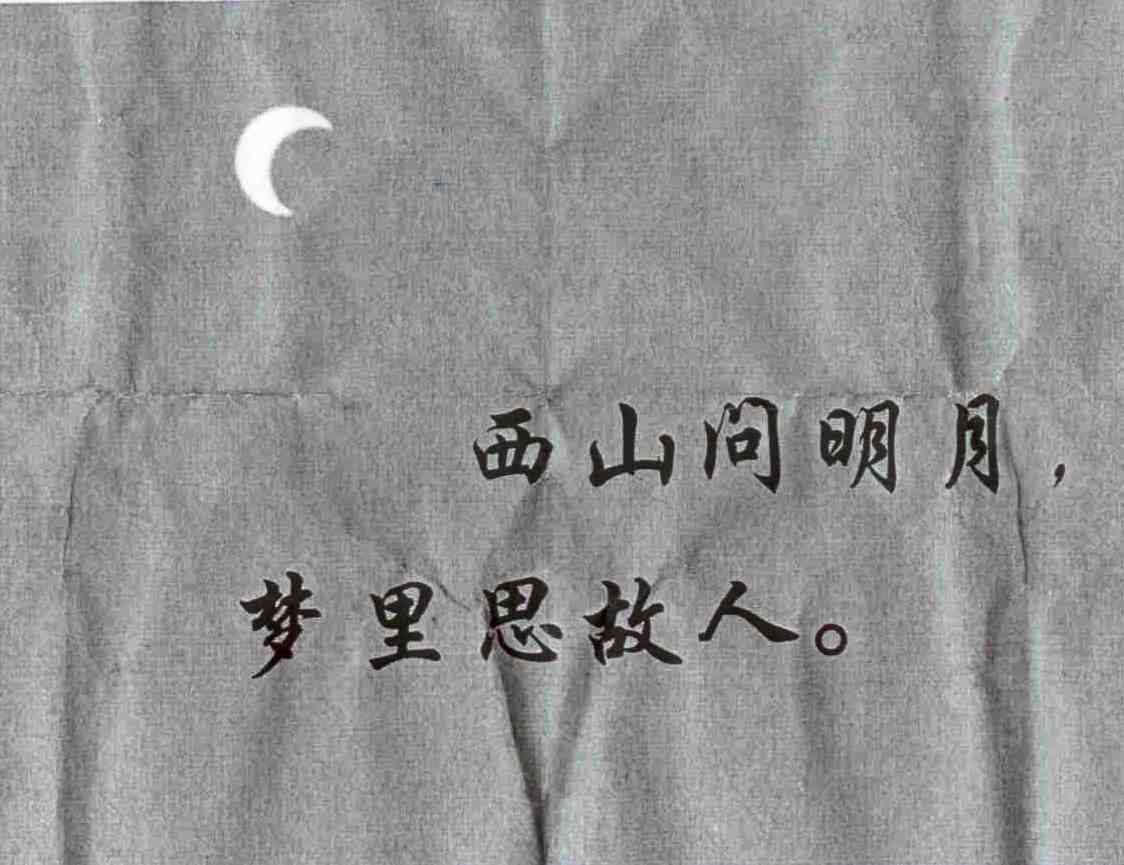 西山问明月，
梦里思故人。